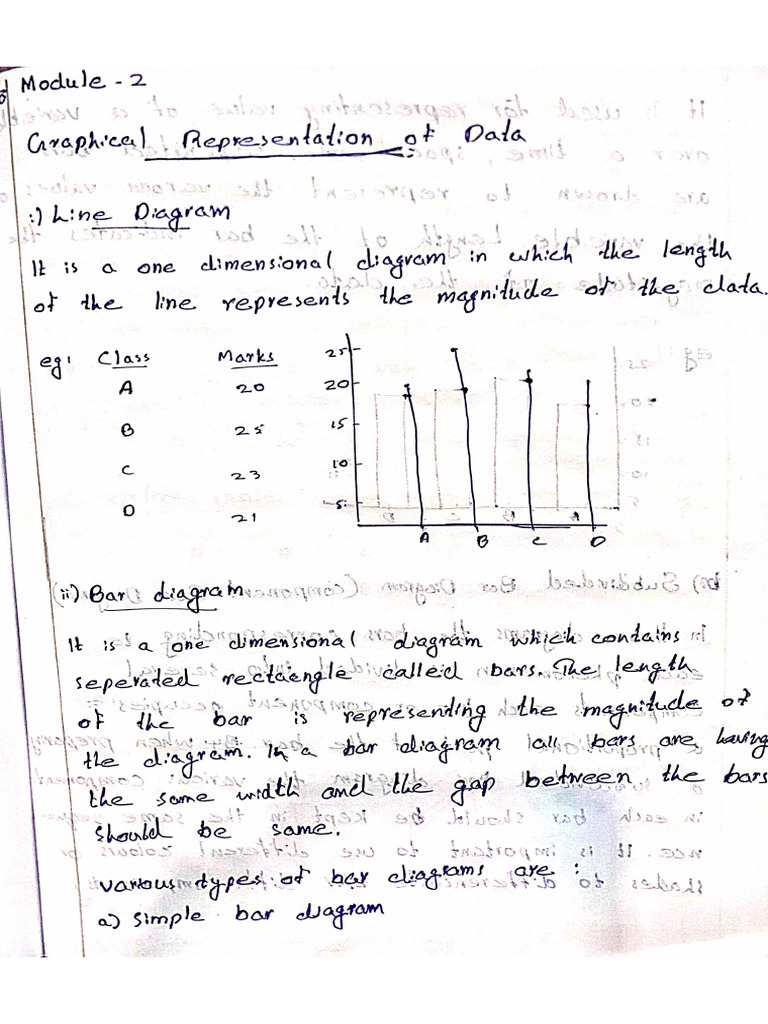 Module - 2
Graphical Representation of Data
i) Line Diagram
It is a one dimensional diagram in which the length
of the line represents the magnitude of the data.
eg: Class Marks
A 20
B 25
C 23
D 21
25
20
15
10
5
A B C D
(ii) Bar diagram
It is a one dimensional diagram which contains
seperated rectaengle called bars. The length
of the bar is representing the magnitude of
the diagram. In a bar diagram all bars are having
the same width and the gap between the bars
should be same.
various types of bar diagrams are:
a) simple bar diagram